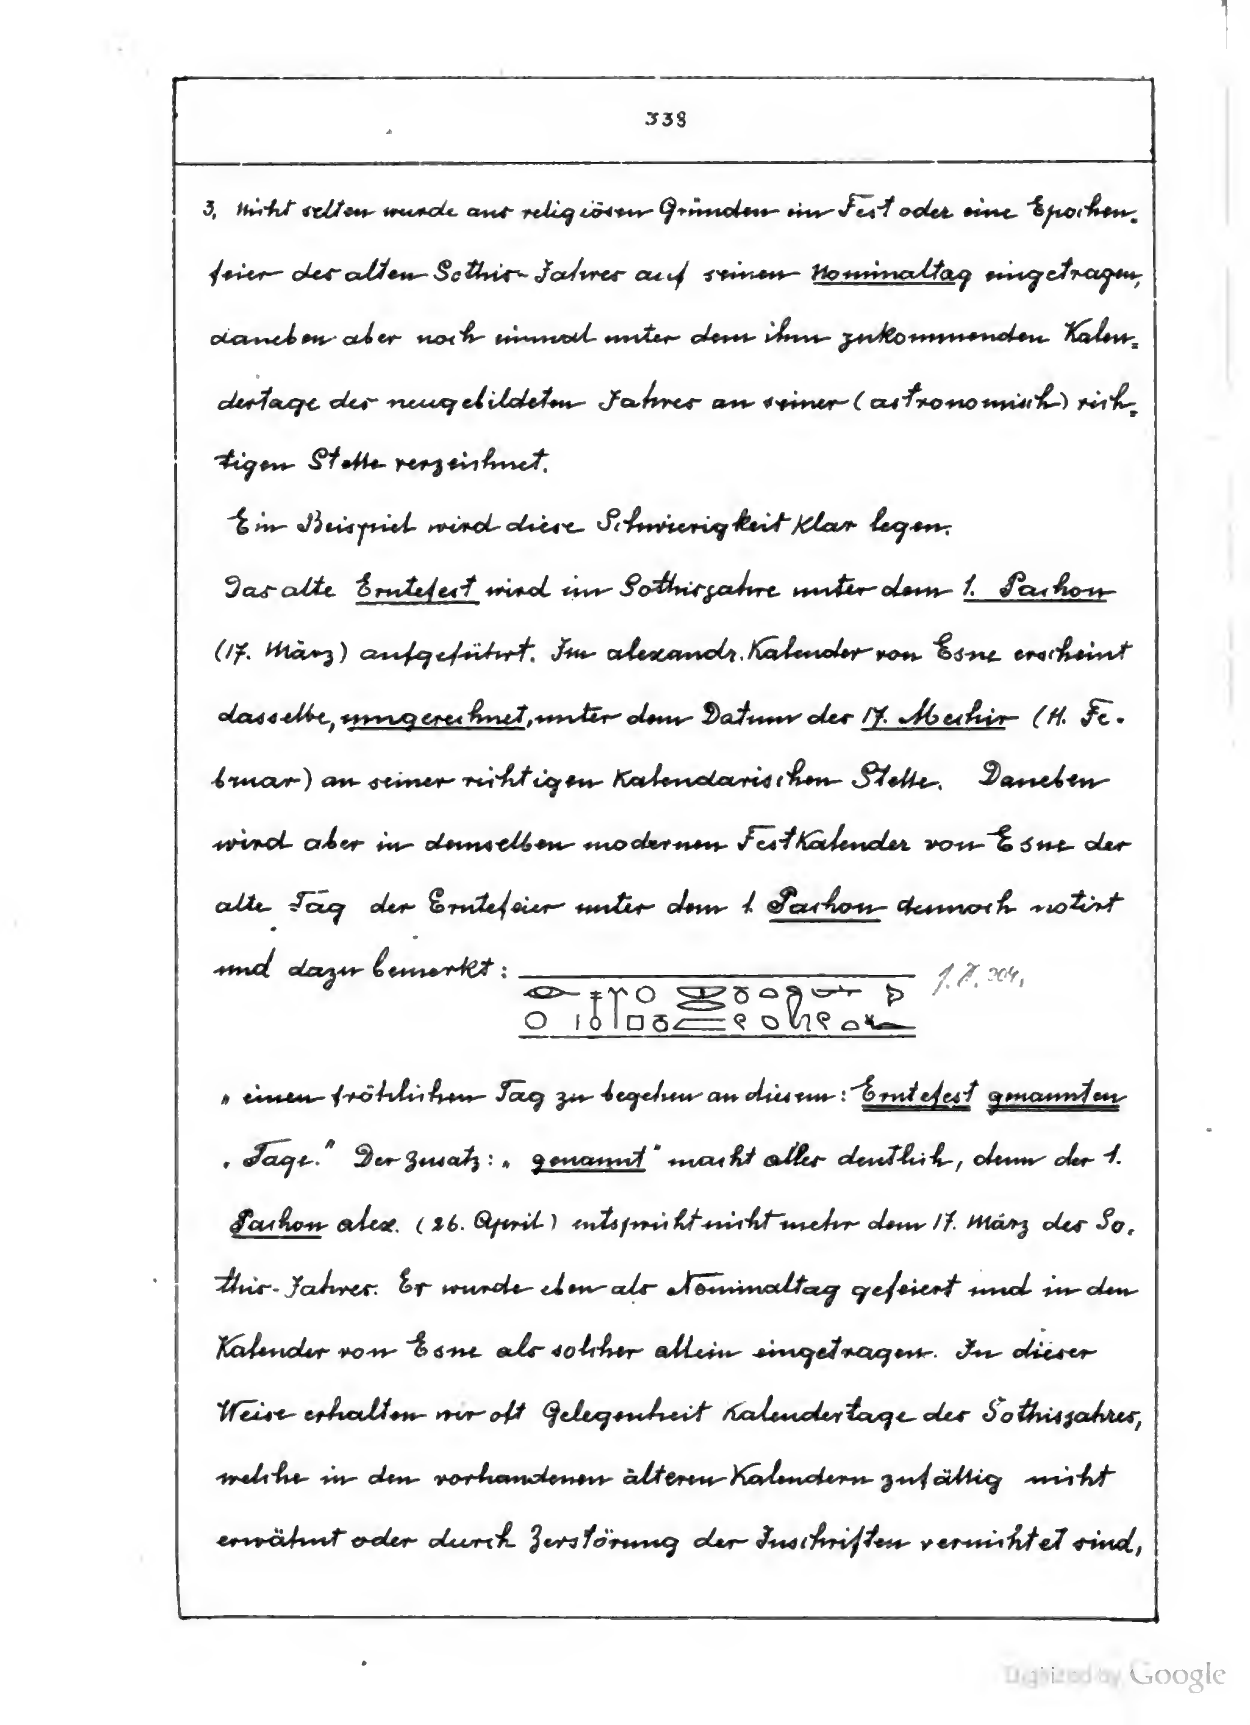 338
3, Nicht selten wurde aus religiösen Gründen ein Fest oder eine Epochen-
feier des alten Sothis-Jahres auf seinen Nominaltag eingetragen,
daneben aber noch einmal unter dem ihm zukommenden Kalen-
dertage des neugebildeten Jahres an seiner (astronomisch) rich-
tigen Stelle verzeichnet.
Ein Beispiel wird diese Schwierigkeit klar legen.
Das alte Erntefest wird im Sothisjahre unter dem 1. Pachon
(17. März) aufgeführt. Im alexandr. Kalender von Esne erscheint
dasselbe, umgerechnet, unter dem Datum des 17. Mechir (11. Fe-
bruar) an seiner richtigen Kalendarischen Stelle. Daneben
wird aber in demselben modernen Festkalender von Esne der
alte Tag der Erntefeier unter dem 1. Pachon dennoch notirt
und dazu bemerkt:
„ einen fröhlichen Tag zu begehen an diesem: Erntefest genannten
„ Tage." Der Zusatz: „ genannt" macht alles deutlich, denn der 1.
Pachon alex. (26. April) entspricht nicht mehr dem 17. März des So-
this-Jahres. Er wurde eben als Nominaltag gefeiert und in den
Kalender von Esne als solcher allein eingetragen. In dieser
Weise erhalten wir oft Gelegenheit Kalendertage des Sothisjahres,
welche in den vorhandenen älteren Kalendern zufällig nicht
erwähnt oder durch Zerstörung der Inschriften vernichtet sind,
Digitized by Google